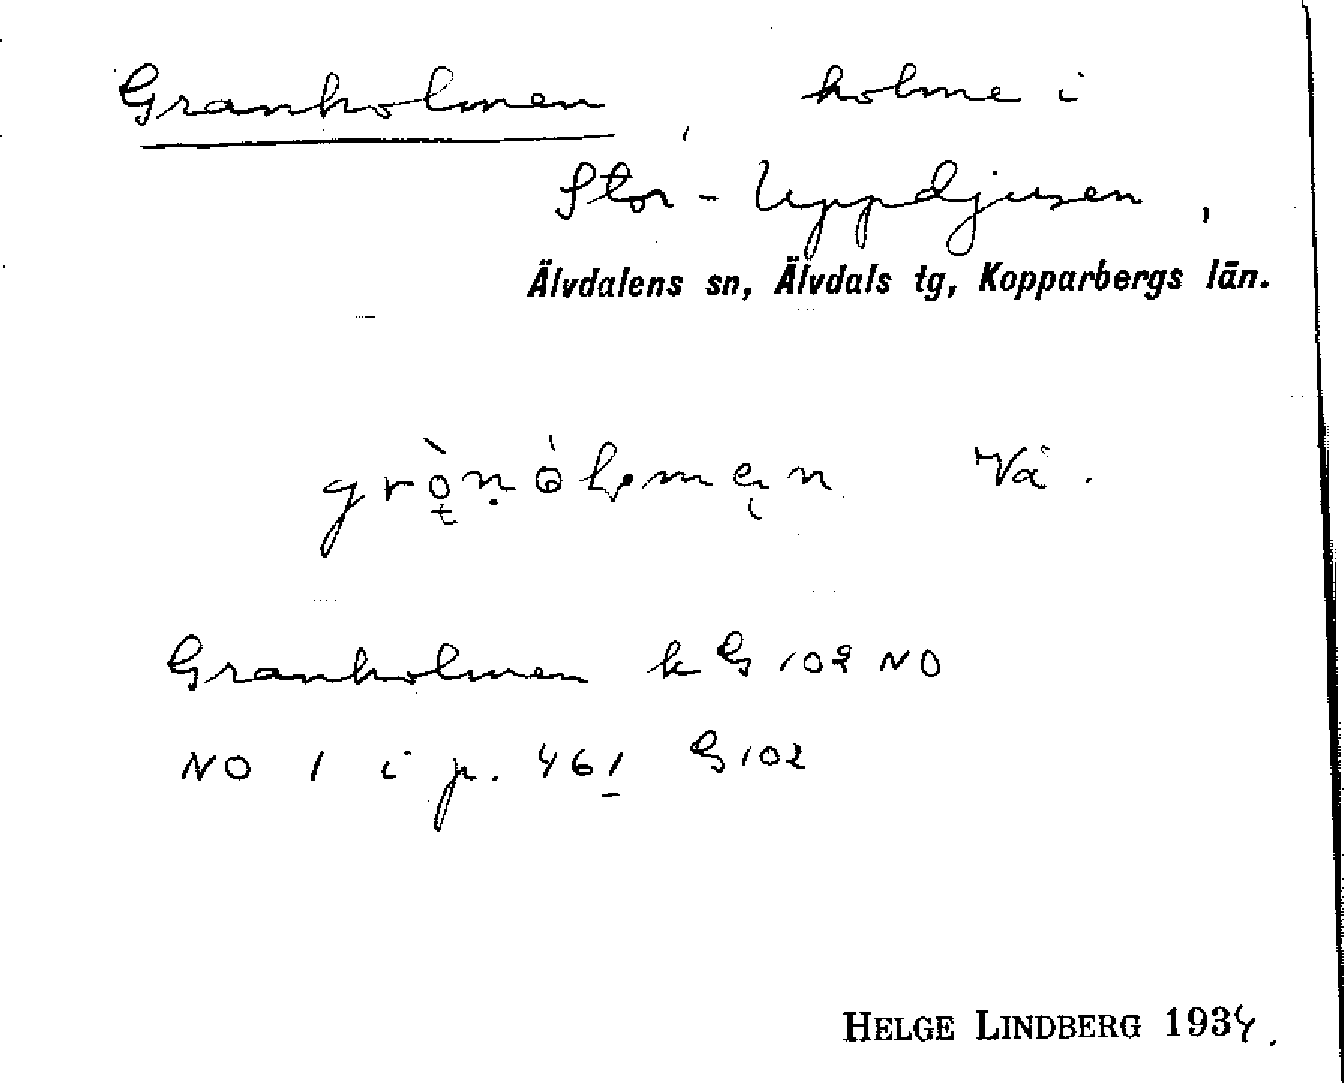 Granholmen, holme i
Stor-Uppdjusen,
Älvdalens sn, Älvdals tg, Kopparbergs län.
Vä.
Granholmen k G 102 NO
NO 1 i p. 461 G 102
HELGE LINDBERG 1934.